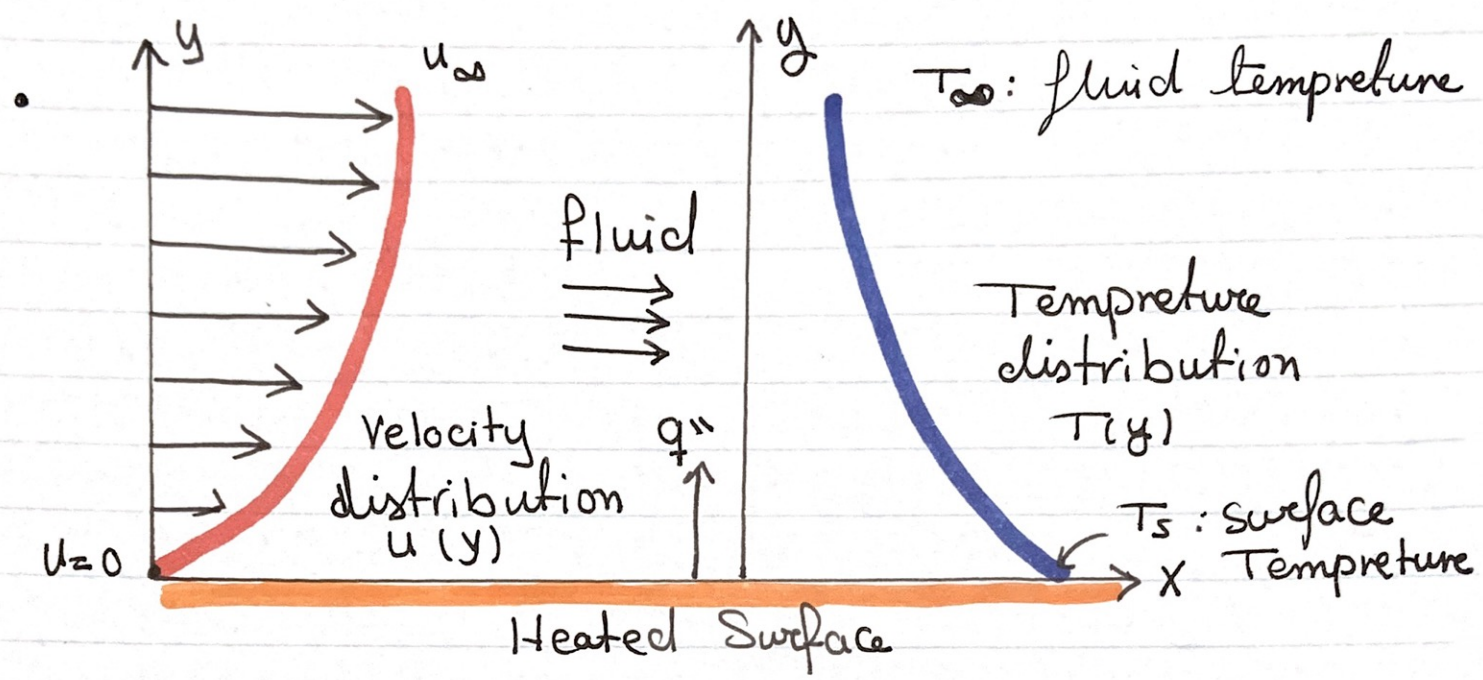 y
u∞
y
T∞: fluid tempreture
fluid
Tempreture
distribution
T(y)
velocity
distribution
u (y)
q"
Ts : surface
Tempreture
u=0
X
Heated Surface